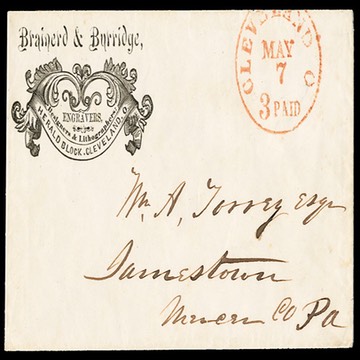 Brainerd & Burridge,
ENGRAVERS,
Designers & Lithographers
HERALD BLOCK, CLEVELAND, O.
CLEVELAND O
MAY
7
3 PAID
Wm A, Torrey Esqr
Jamestown
Mercer Co Pa